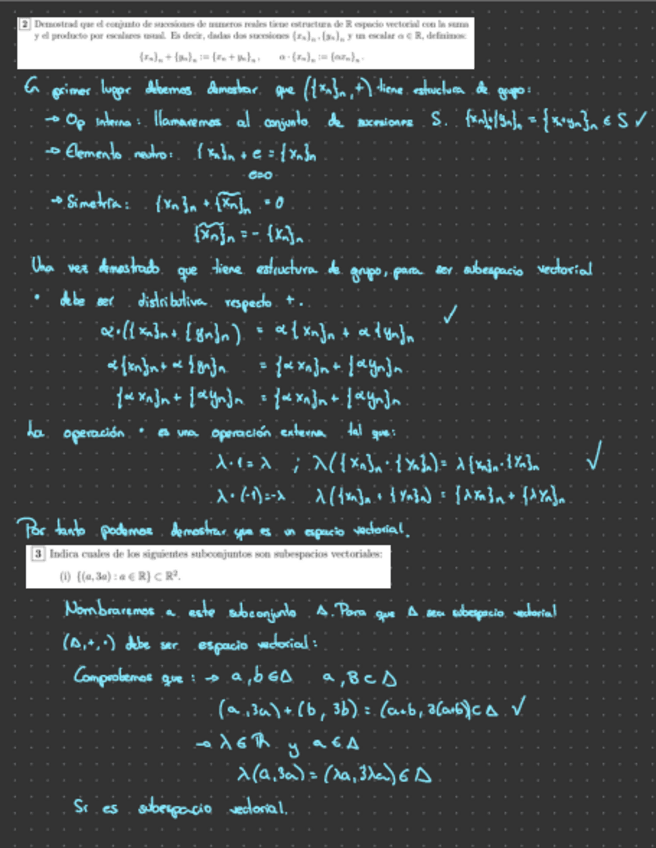 2 Demostrad que el conjunto de sucesiones de numeros reales tiene estructura de ℝ espacio vectorial con la suma
y el producto por escalares usual. Es decir, dadas dos sucesiones {xₙ}ₙ, {yₙ}ₙ y un escalar α ∈ ℝ, definimos:
{xₙ}ₙ + {yₙ}ₙ := {xₙ + yₙ}ₙ, α · {xₙ}ₙ := {αxₙ}ₙ.
En primer lugar debemos demostrar que ({xₙ}ₙ, +) tiene estructura de grupo:
→ Op interna: llamaremos al conjunto de sucesiones S. {xₙ}ₙ+{yₙ}ₙ = {xₙ+yₙ}ₙ ∈ S ✓
→ Elemento neutro: {xₙ}ₙ + e = {xₙ}ₙ
e=0
→ Simetría: {xₙ}ₙ + {x̃ₙ}ₙ = 0
{x̃ₙ}ₙ = - {xₙ}ₙ
Una vez demostrado que tiene estructura de grupo, para ser subespacio vectorial
· debe ser distributiva respecto +.
α·({xₙ}ₙ + {yₙ}ₙ) = α{xₙ}ₙ + α{yₙ}ₙ ✓
α{xₙ}ₙ + α{yₙ}ₙ = {αxₙ}ₙ + {αyₙ}ₙ
{αxₙ}ₙ + {αyₙ}ₙ = {αxₙ}ₙ + {αyₙ}ₙ
La operación · es una operación externa tal que:
λ·1 = λ ; λ({xₙ}ₙ · {yₙ}ₙ) = λ{xₙ}ₙ·{yₙ}ₙ ✓
λ·(-1)=-λ λ({xₙ}ₙ + {yₙ}ₙ) = {λxₙ}ₙ + {λyₙ}ₙ
Por tanto podemos demostrar que es un espacio vectorial.
3 Indica cuales de los siguientes subconjuntos son subespacios vectoriales:
(i) {(a, 3a) : a ∈ ℝ} ⊂ ℝ².
Nombraremos a este subconjunto Δ. Para que Δ sea subespacio vectorial
(Δ,+,·) debe ser espacio vectorial:
Comprobemos que: → a,b ∈ Δ a,B ⊂ Δ
(a,3a) + (b, 3b) = (a+b, 3(a+b)) ⊂ Δ ✓
→ λ ∈ ℝ y a ∈ Δ
λ(a,3a) = (λa, 3λa) ∈ Δ
Si es subespacio vectorial.